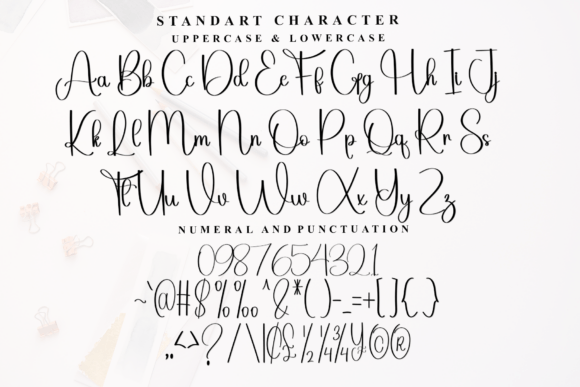 STANDART CHARACTER
UPPERCASE & LOWERCASE
Aa Bb Cc Dd Ee Ff Gg Hh Ii Jj
Kk Ll Mm Nn Oo Pp Qq Rr Ss
Tt Uu Vv Ww Xx Yy Zz
NUMERAL AND PUNCTUATION
0987654321
~`@#$%‰^&*()-_=+[]{}
„‹›?/\|¢£½¼¾¥©®